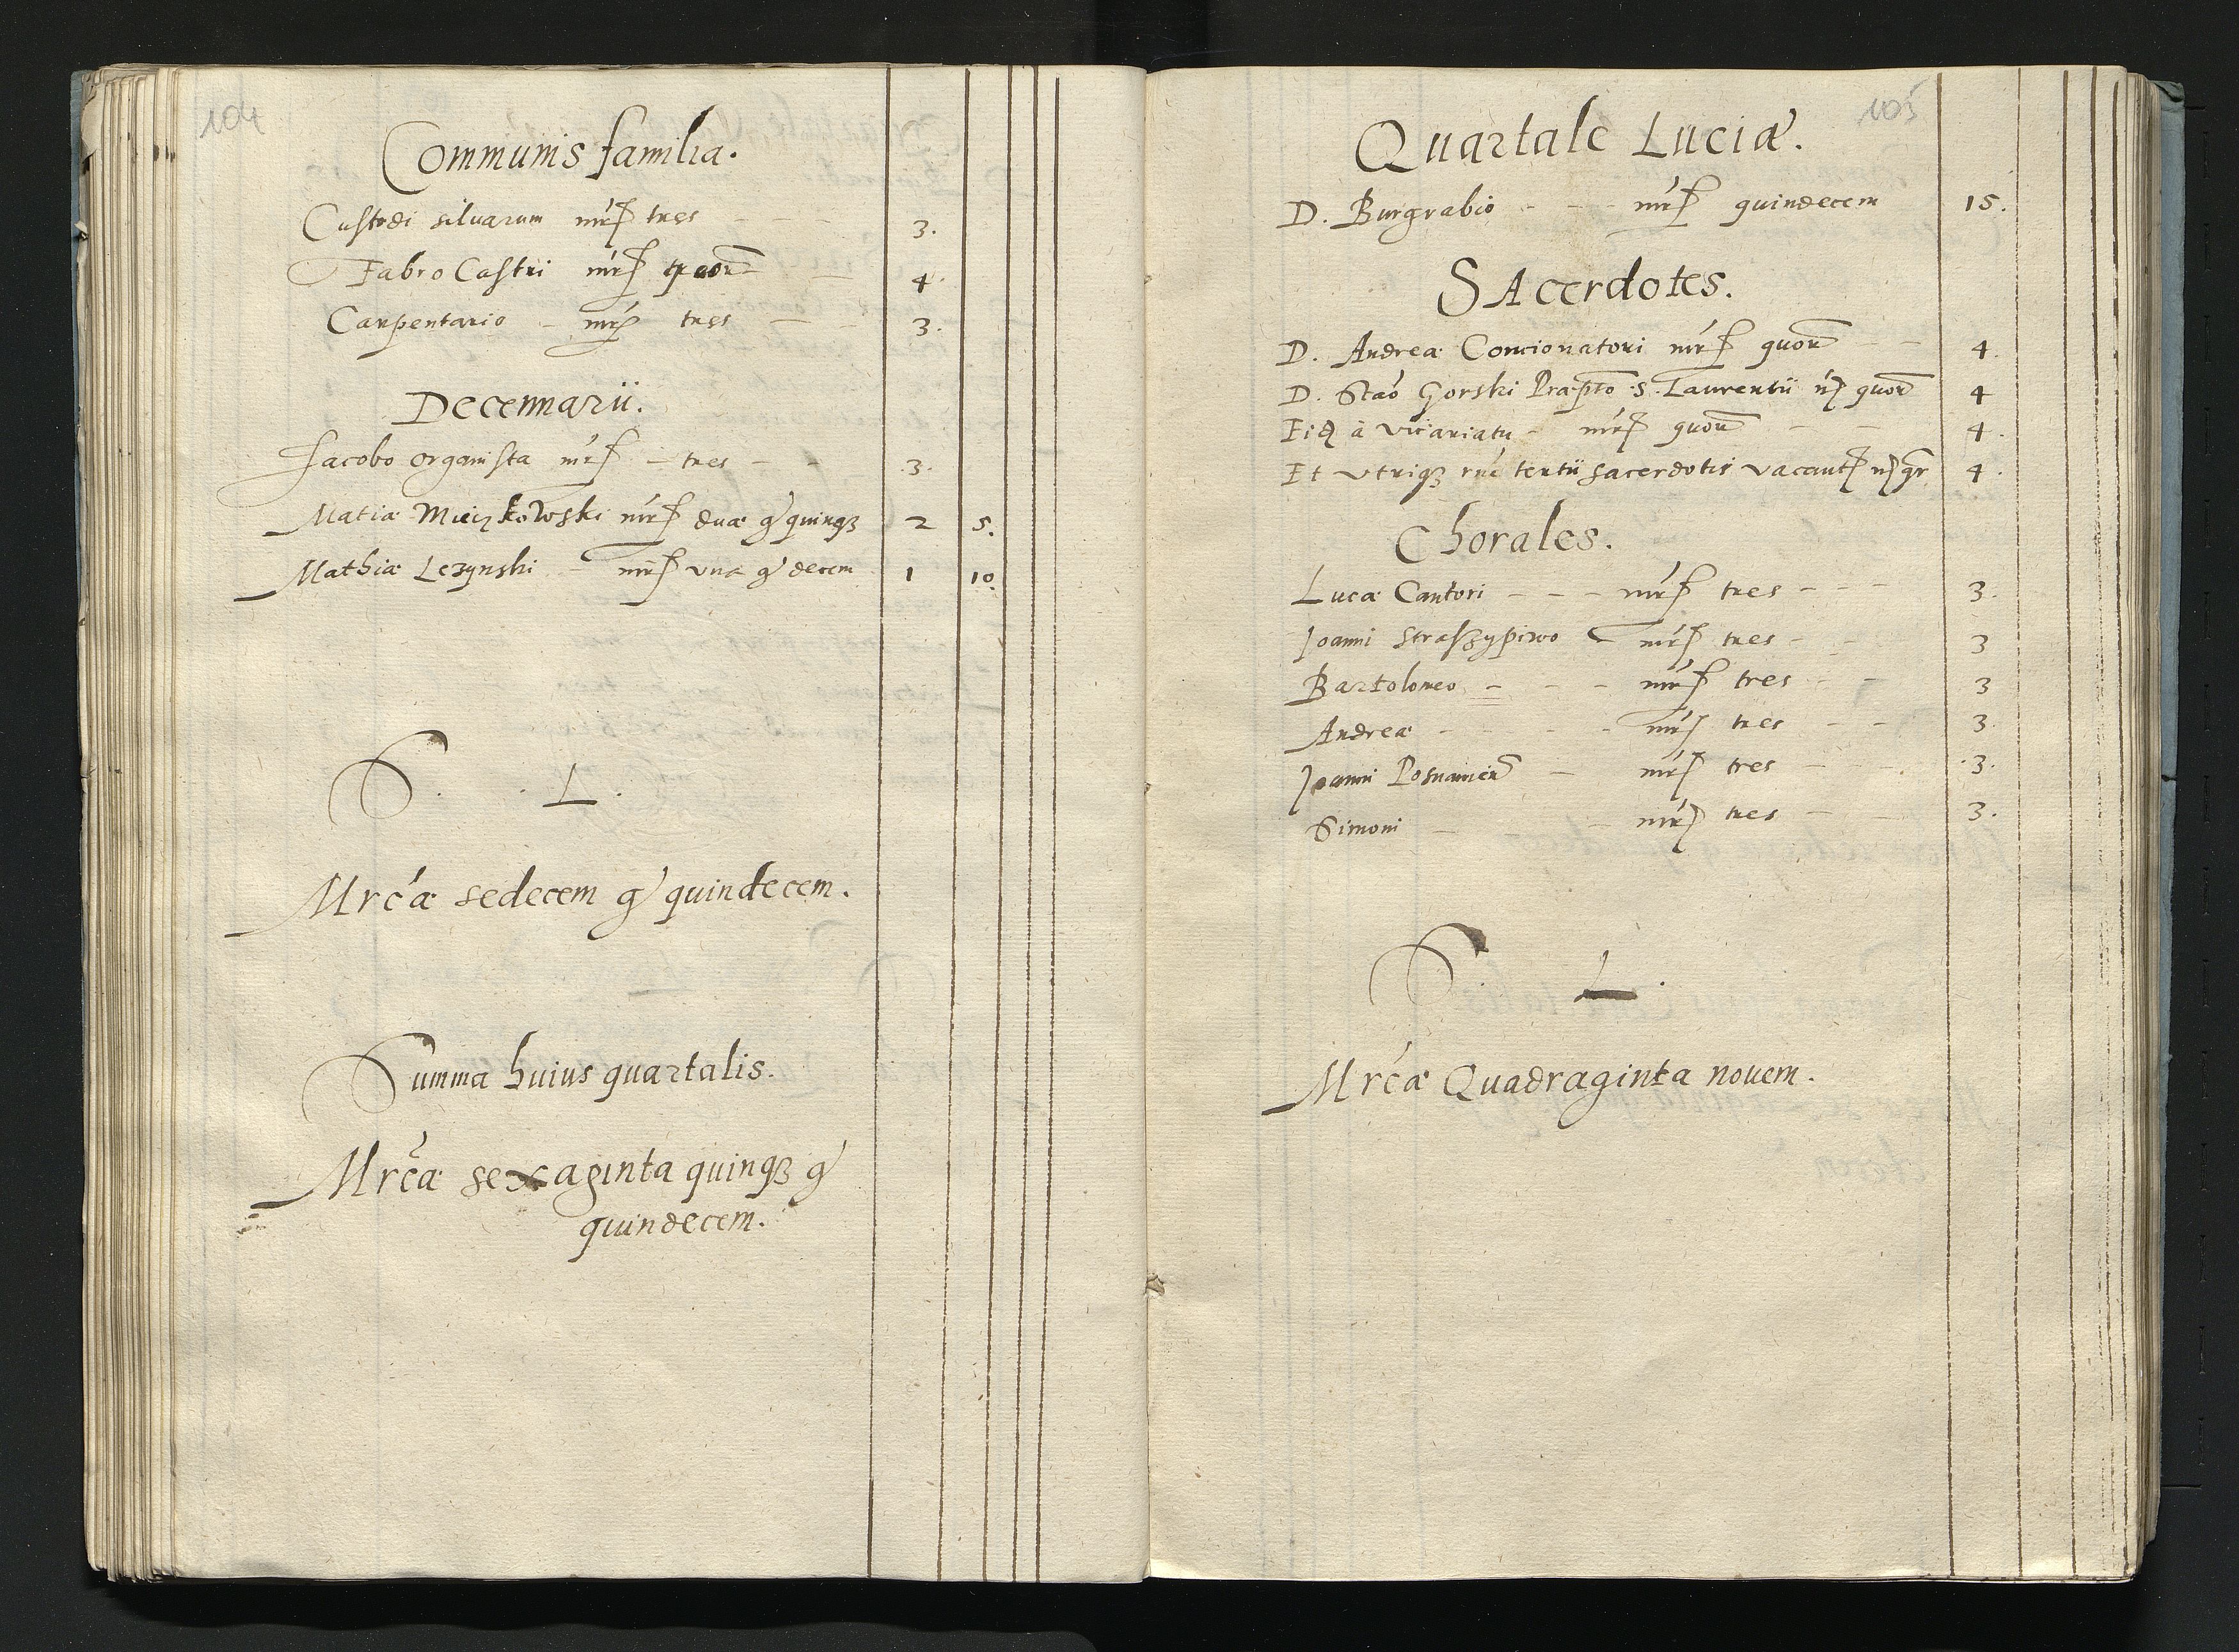 104
Communis familia.
Custodi siluarum mrc tres 3.
Fabro Castri mrc quor 4.
Carpentario mrc tres 3.
Decennarii.
Jacobo organista mrc tres .3.
Matiæ Mieczkowski mrc duæ g quinq3 2 5.
Mathiæ Lezynski mrc una g decem 1 10.
S. .L.
Mrcæ sedecem g quindecem.
Summa huius quartalis.
Mrcæ sexaginta quinq3 g
quindecem.
105
Quartale Luciæ.
D. Burgrabio mrc quindecem 15.
SAcerdotes.
D. Andreæ Concionatori mrc quor 4.
D. Stao Gorski Præpto S. Laurentii m quor 4
Eid à vicariatu mrc quor 4.
Et vtriq3 rne tertii sacerdotis vacant m qr 4.
Chorales.
Lucæ Cantori mrc tres 3.
Joanni Straszypiwo mrc tres 3
Bartolomeo mrc tres 3
Andreæ mrc tres 3.
Joanni Posnanien mrc tres .3.
Simoni mrc tres 3.
S. L.
Mrcæ Quadraginta nouem.